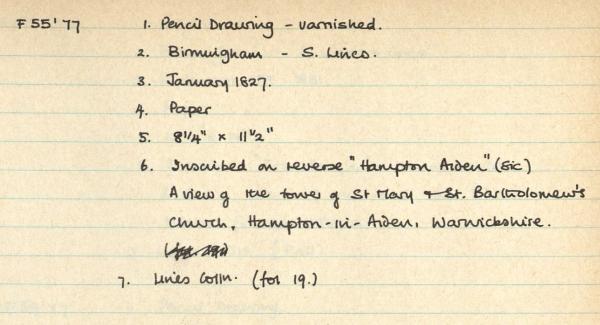 F 55' 77 1. Pencil Drawing - varnished.
2. Birmingham - S. Lines.
3. January 1827.
4. Paper
5. 8 1/4" x 11 1/2"
6. Inscribed on reverse "Hampton Arden" (Sic)
A view of the tower of St Mary & St. Bartholomew's
Church, Hampton-in-Arden, Warwickshire.
7. Lines Colln. (for 19.)